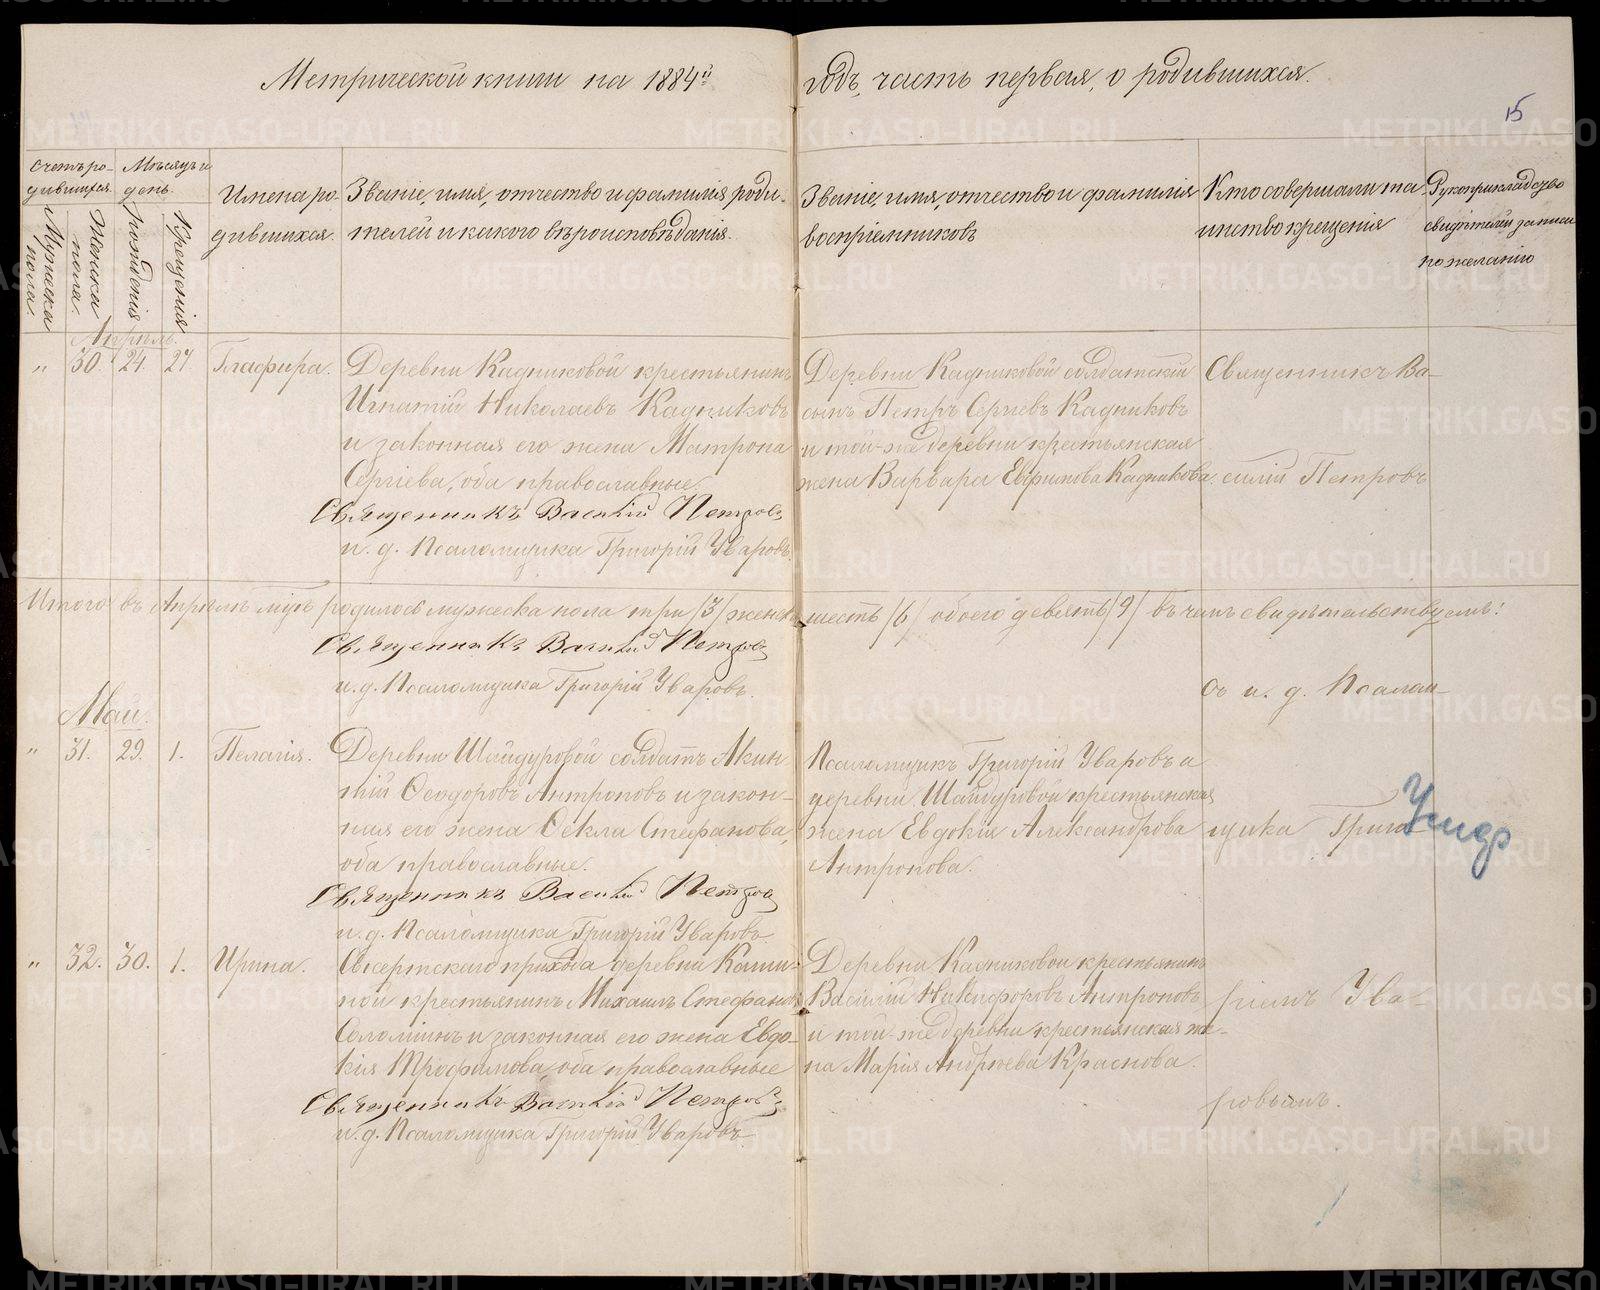 Метрической книги на 1884й годъ, часть первая, о родившихся.
15
Счетъ ро-
дившихся.
Мужеска пола.
Женска пола.
Мѣсяцъ и
день.
Рожденія
Крещенія
Имена ро-
дившихся.
Званіе, имя, отчество и фамилія роди-
телей и какого вѣроисповѣданія.
Званіе, имя, отчество и фамилія
воспріемниковъ
Кто совершалъ та
инство крещенія
Рукоприкладство
свидѣтелей записи
по желанію
Апрѣль.
" 30. 24. 27 Глафира.
Деревни Кадниковой крестьянинъ
Игнатій Николаевъ Кадниковъ
и законная его жена Матрона
Сергіева, оба православные.
Священникъ Василій Петровъ
и. д. Псаломщика Григорій Уваровъ
Деревни Кадниковой солдатскій
сынъ Петръ Сергіевъ Кадниковъ
и той-же деревни крестьянская
жена Варвара Ефимова Кадникова.
Священникъ Ва-
силій Петровъ
Итого въ Апрѣлѣ мцѣ родилось мужеска пола три /3/ женска шесть /6/ обоего девять /9/ въ чемъ свидѣтельствуемъ:
Священникъ Василій Петровъ
и. д. Псаломщика Григорій Уваровъ.
съ и. д. Псалом-
Май.
" 31. 29. 1. Пелагія.
Деревни Шайдуровой солдатъ Акин-
тій Ѳеодоровъ Антроповъ и закон-
ная его жена Ѳекла Стефанова,
оба православные.
Священникъ Василій Петровъ
и. д. Псаломщика Григорій Уваровъ.
Псаломщикъ Григорій Уваровъ и
деревни Шайдуровой крестьянская
жена Евдокія Александрова
Антропова.
щика Григо-
" 32. 30. 1. Ирина.
Сысертскаго прихода деревни Каши-
ной крестьянинъ Михаилъ Стефановъ
Соломинъ и законная его жена Евдо-
кія Трофимова, оба православные
Священникъ Василій Петровъ
и. д. Псаломщика Григорій Уваровъ
Деревни Кадниковой крестьянинъ
Василій Никифоровъ Антроповъ
и той-же деревни крестьянская же-
на Марія Андреева Краснова.
ріемъ Ува-
ровымъ.
METRIKI.GASO-URAL.RU